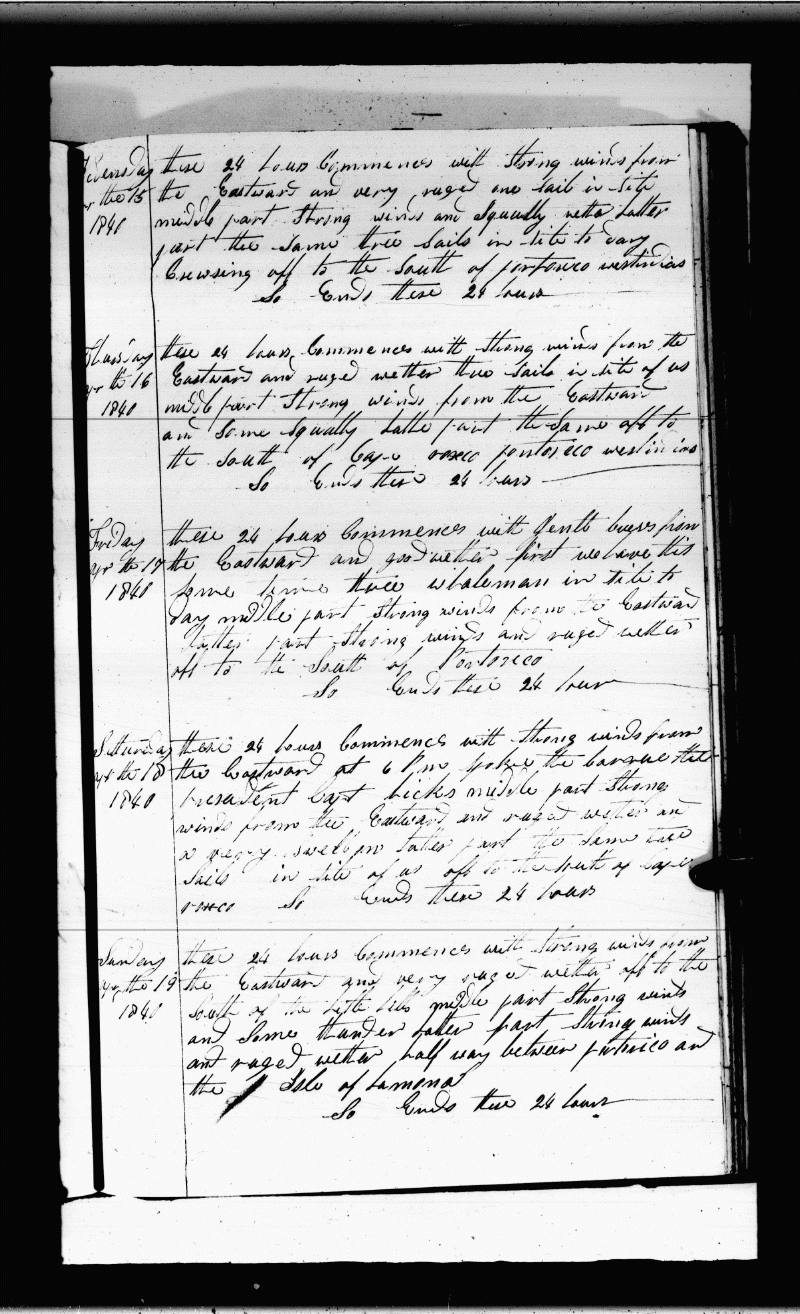 Wensday these 24 hours Commences with Strong winds from
apr the 15 the Eastward and very ruged one Sail in Site
1840 middle part Strong winds and Squally wetter latter
part the Same three Sails in Site to day
Crewsing off to the South of portorico westindias
So Ends these 24 hours
Thursday these 24 hours Commences with Strong winds from the
apr the 16 Eastward and ruged wetter three Sails in Site of us
1840 middle part Strong winds from the Eastward
and Some Squally latter part the Same off to
the South of Cape roxco portorico westindias
So Ends these 24 hours
Friday these 24 hours Commences with Gentle breses from
apr the 17 the Eastward and good wether first we have this
1840 Some time three whaleman in Site to
day middle part Strong winds from the Eastward
latter part Strong winds and ruged wetter
off to the South of Portorico
So Ends these 24 hours
Satturday these 24 hours Commences with Strong winds from
apr the 18 the Eastward at 6 Pm Spoke the barque the
1840 president Capt hicks middle part Strong
winds from the Eastward and ruged wetter and
a very latter part the Same three
Sails in Site of us off to the South of Cape
roxco So Ends these 24 hours
Sunday these 24 hours Commences with Strong winds from
apr the 19 the Eastward and very ruged wetter off to the
1840 South of the middle part Strong winds
and Some thunder latter part Strong winds
and ruged wetter half way between portorico and
the Isle of Lamona
So Ends these 24 hours